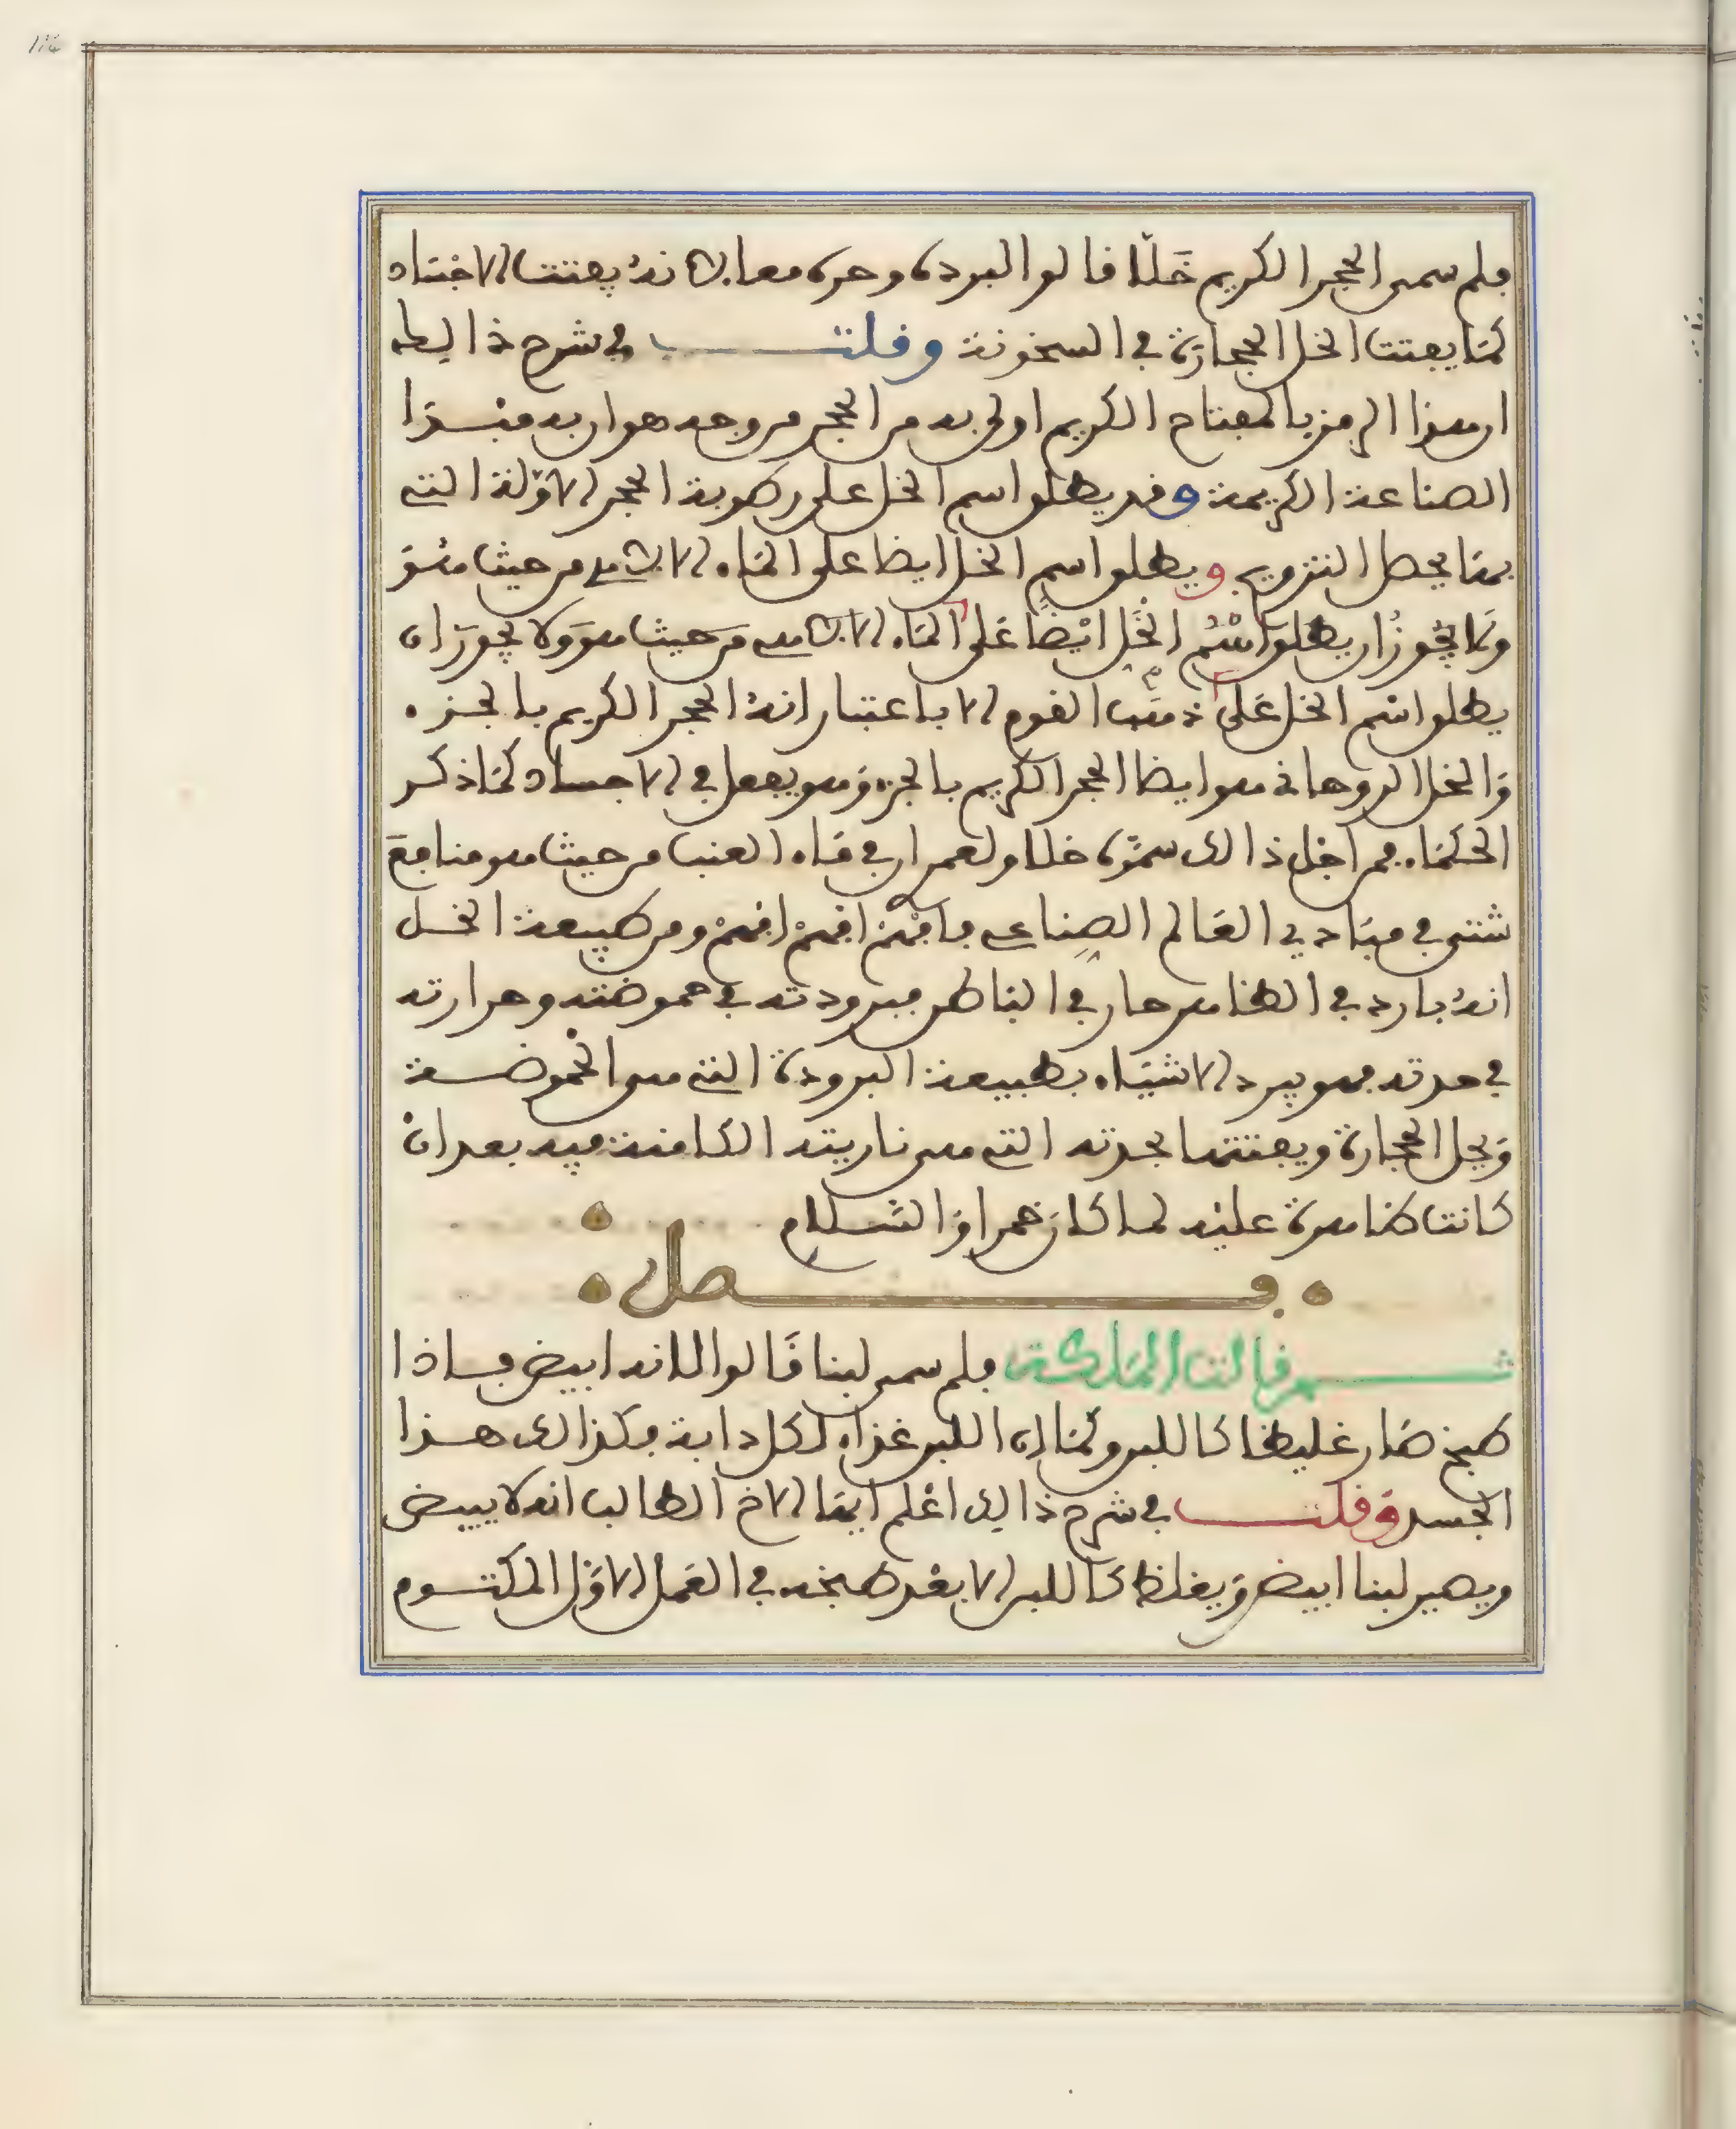 فلم سمى الحجر الكريم خَلّا قالوا لبرده وحره معا لانهُ يفتت الاجساد
كما يفتت الخل الحجارة في السخونة وقلت في شرح ذالك
ان هذا الرمز بالمفتاح الكريم اولى به من الحجر من وجه هو اربه مبدا
الصناعة الكريمة وقد يطلق اسم الخل على رطوبة الحجر الاولة التي
بها يحصل التزويج ويطلق اسم الخل ايضا على الماء الالاهي من حيث هُوَ
ولا يجوزُ ان يطلق اسْمُ الخَل ايْضًا عَلى الماء الالاهي من حيث هو ولا يجوز ان
يطلق اسم الخل عَلى ذهب القوم الا باعتبار انهُ الحجر الكريم بالجزء
وَالخل الروحاني هو ايضا الحجر الكريم بالجزء وَهو يفعل في الاجساد كما ذكر
الحكماء فمن اجل ذالك سموه خلا ولعمري ان في ماء العنب من حيث هو منافعَ
شتى في مبادي العَالم الصِناعي فافهمْ افهمْ افهمْ ومن طبيعة الخل
انهُ بارد في الظاهر حار في الباطن فبرودته في حموضته وحرارته
في حدته فهو يبرد الاشياء بطبيعة البرودة التي هي الحموضة
وَيحل الحجارة ويفتتها بحدته التي هي ناريته الكامنة فيه بعد انْ
كانت ظاهرة عليْه لما كان خمرا وَالسَّلام
فصل
ثم قالت الملكة فلم سمى لبنا قَالوا لانه ابيض فاذا
طبخ صَار غليظا كاللبن وكما ان اللبن غذاء لكل دابة فكذالك هذا
الجسد وَقلت في شرح ذالك اعْلم ايها الاخ الطالب انه لا يبيض
ويصير لبنا ابيض وَيغلظ كاللبن الا بعْد طبخه في العَمل الاوَّل المكتوم